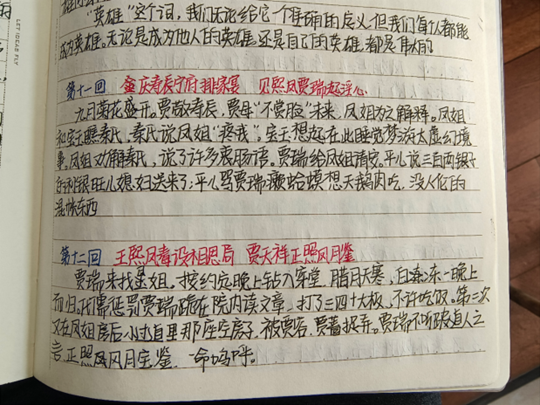 "英雄"这个词，我们无论给它一个准确的定义，但我们每个人都能
成为英雄。无论是成为他人的英雄，还是自己的英雄，都是伟大的
第十一回 宁府排家宴 见熙凤贾瑞起淫心
九月菊花盛开。贾敬寿辰，贾母"不要脸"未来，凤姐为之解释。凤姐
和宝玉瞧秦氏，秦氏说凤姐"疼我"。宝玉想起在此睡觉梦游太虚幻境
事。凤姐劝解秦氏，说了许多衷肠话。贾瑞给凤姐请安。平儿说三百两银子
利银旺儿媳妇送来了；平儿骂贾瑞癞蛤蟆想天鹅肉吃，没人伦的
混帐东西
第十二回 王熙凤毒设相思局 贾天祥正照风月鉴
贾瑞来找凤姐，按约定晚上钻入穿堂，腊月天寒，白冻一晚上
而归。代儒惩罚贾瑞跪在院内读文章，打了三四十大板，不许吃饭。第二次
又在凤姐房后小过道里那座空房子，被贾蓉、贾蔷捉弄。贾瑞不听跛道人之
言，正照风月宝鉴，一命呜呼。
LET IDEAS FLY